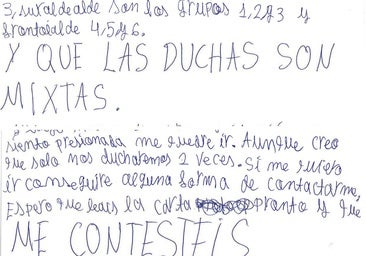 3, surtaldealde son los grupos 1,2y3 y
frontaialde 4,5y6.
Y QUE LAS DUCHAS SON
MIXTAS.
siento presionada me puedo ir. Aunque creo
que solo nos ducharemos 2 veces. Si me
ir conseguire alguna forma de contactarme,
Espero que leais la carta pronto y que
ME CONTESTEIS